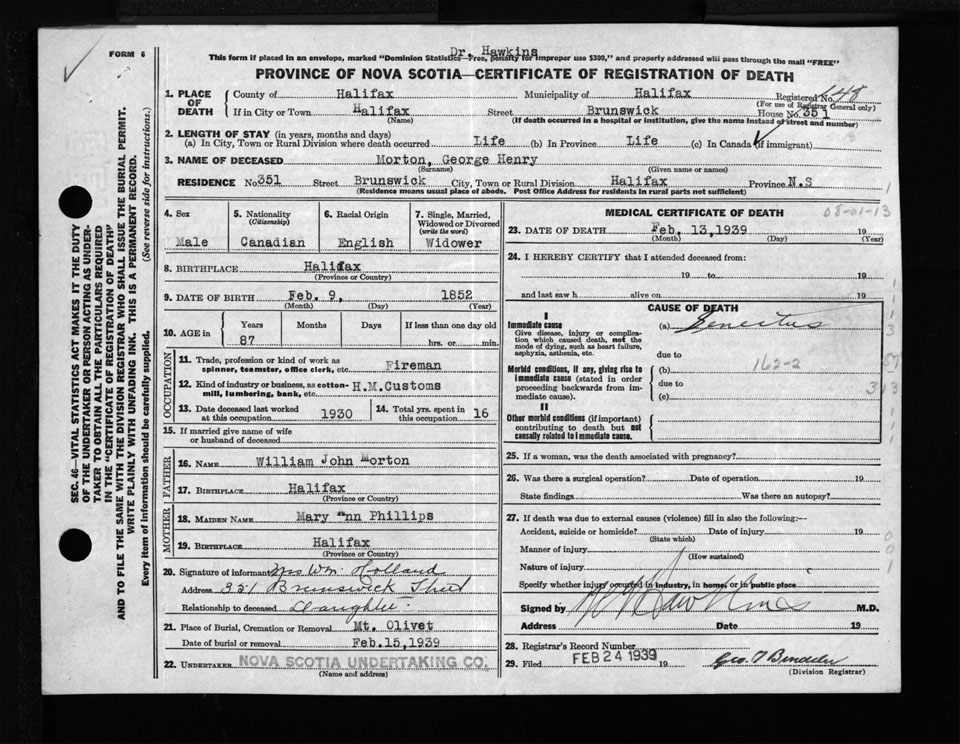 FORM 6
Dr. Hawkins
This form if placed in an envelope, marked "Dominion Statistics—Free, penalty for improper use $300," and properly addressed will pass through the mail "FREE"
PROVINCE OF NOVA SCOTIA—CERTIFICATE OF REGISTRATION OF DEATH
SEC. 46—VITAL STATISTICS ACT MAKES IT THE DUTY
OF THE UNDERTAKER OR PERSON ACTING AS UNDER-
TAKER TO OBTAIN ALL THE PARTICULARS REQUIRED
IN THE "CERTIFICATE OF REGISTRATION OF DEATH"
AND TO FILE THE SAME WITH THE DIVISION REGISTRAR WHO SHALL ISSUE THE BURIAL PERMIT.
WRITE PLAINLY WITH UNFADING INK. THIS IS A PERMANENT RECORD.
Every item of information should be carefully supplied. (See reverse side for instructions.)
1. PLACE OF DEATH
County of Halifax Municipality of Halifax Registered No. 648
(For use of Registrar General only)
If in City or Town Halifax Street Brunswick House No. 351
(Name) (If death occurred in a hospital or institution, give the name instead of street and number)
2. LENGTH OF STAY (in years, months and days)
(a) In City, Town or Rural Division where death occurred Life (b) In Province Life (c) In Canada (if immigrant)
3. NAME OF DECEASED Morton, George Henry
(Surname) (Given name or names)
RESIDENCE No. 351 Street Brunswick City, Town or Rural Division Halifax Province N.S
(Residence means usual place of abode. Post Office Address for residents in rural parts not sufficient)
4. Sex
Male
5. Nationality
(Citizenship)
Canadian
6. Racial Origin
English
7. Single, Married,
Widowed or Divorced
(write the word)
Widower
8. BIRTHPLACE Halifax
(Province or Country)
9. DATE OF BIRTH Feb. 9, 1852
(Month) (Day) (Year)
10. AGE in Years Months Days If less than one day old
87 hrs. or min.
OCCUPATION
11. Trade, profession or kind of work as
spinner, teamster, office clerk, etc. Fireman
12. Kind of industry or business, as cotton-
mill, lumbering, bank, etc. H.M.Customs
13. Date deceased last worked
at this occupation 1930
14. Total yrs. spent in
this occupation 16
15. If married give name of wife
or husband of deceased
FATHER
16. NAME William John Morton
17. BIRTHPLACE Halifax
(Province or Country)
MOTHER
18. MAIDEN NAME Mary Ann Phillips
19. BIRTHPLACE Halifax
(Province or Country)
20. Signature of informant Mrs Wm. Holland
Address 351 Brunswick Street
Relationship to deceased Daughter
21. Place of Burial, Cremation or Removal Mt. Olivet
Date of burial or removal Feb.15,1939
22. UNDERTAKER NOVA SCOTIA UNDERTAKING CO.
(Name and address)
MEDICAL CERTIFICATE OF DEATH
08-01-13
23. DATE OF DEATH Feb. 13,1939 19
(Month) (Day) (Year)
24. I HEREBY CERTIFY that I attended deceased from:
19 to 19
and last saw h alive on 19
CAUSE OF DEATH
I
Immediate cause
Give disease, injury or complica-
tion which caused death, not the
mode of dying, such as heart failure,
asphyxia, asthenia, etc.
(a) Senectus
due to
Morbid conditions, if any, giving rise to
immediate cause (stated in order
proceeding backwards from im-
mediate cause).
(b) 162-2
due to
(c)
II
Other morbid conditions (if important)
contributing to death but not
causally related to immediate cause.
25. If a woman, was the death associated with pregnancy?
26. Was there a surgical operation? Date of operation 19
State findings Was there an autopsy?
27. If death was due to external causes (violence) fill in also the following:—
Accident, suicide or homicide? Date of injury 19
(State which)
Manner of injury
(How sustained)
Nature of injury
Specify whether injury occurred in industry, in home, or in public place
Signed by Hawkins M.D.
Address Date 19
28. Registrar's Record Number
29. Filed FEB 24 1939 19
(Division Registrar)